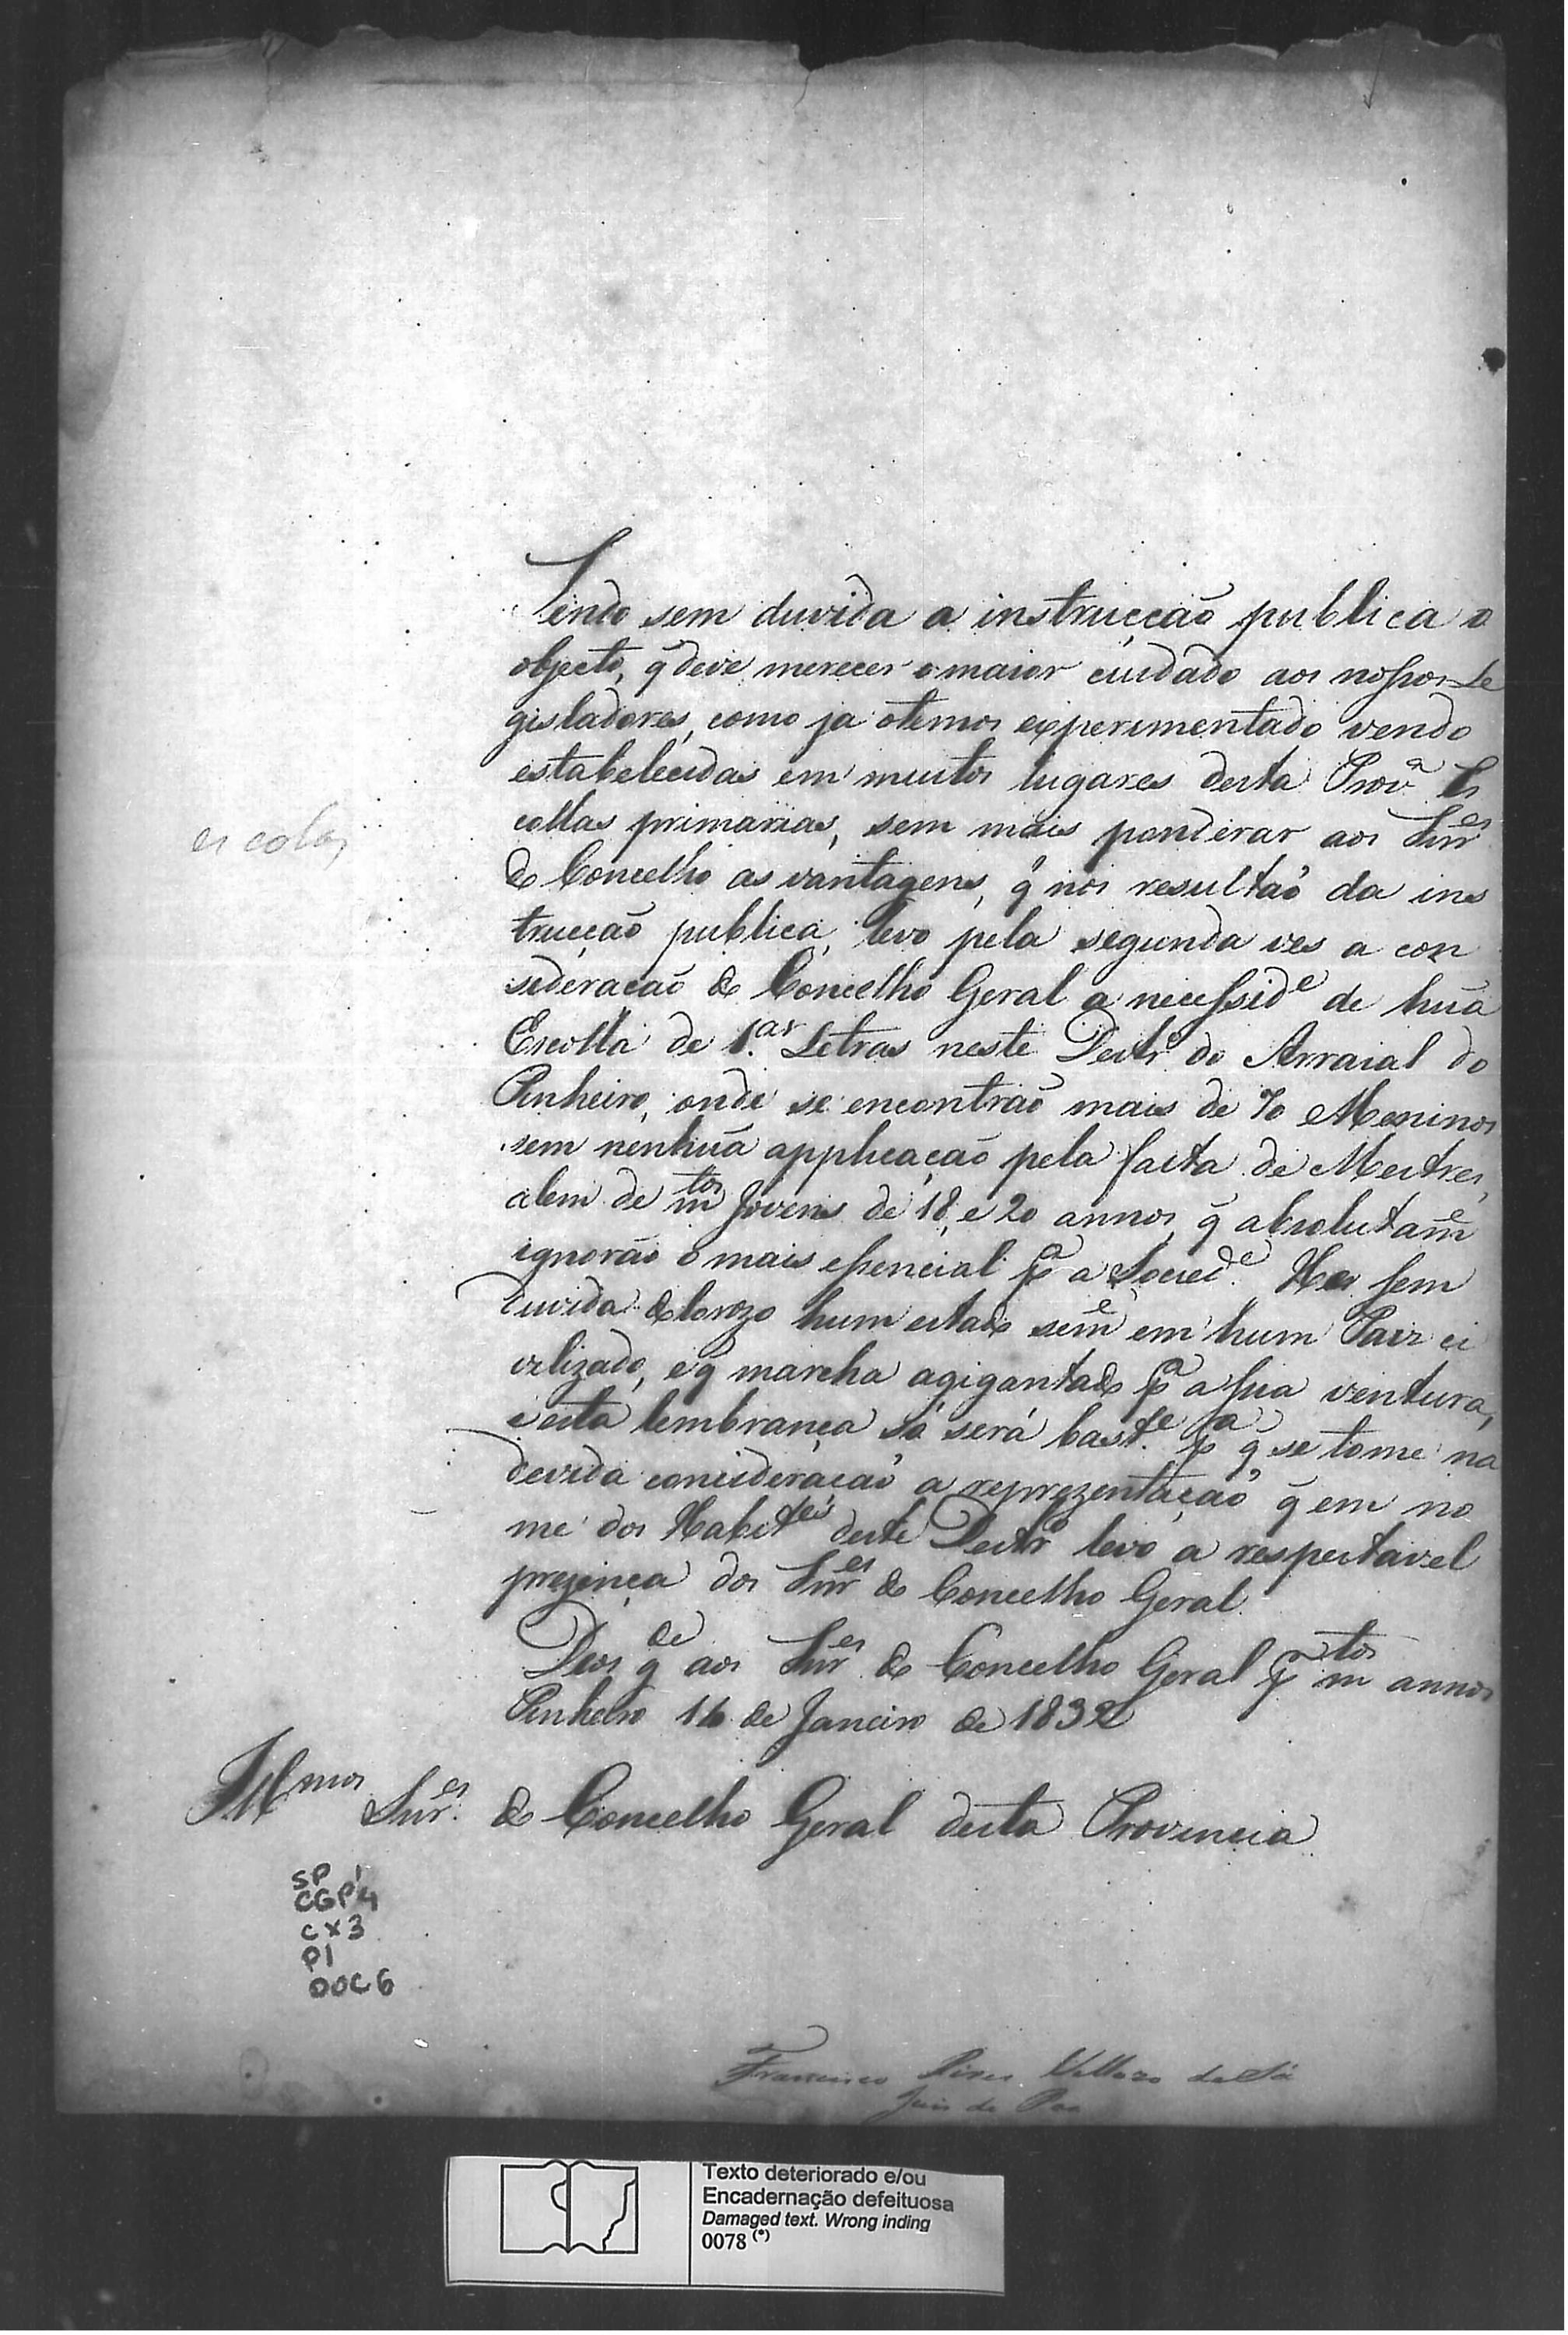 Sendo sem duvida a instrucção publica o
objecto, q̃ deve merecer o maior cuidado aos nossos Le
gisladores, como ja o temos experimentado vendo
estabelecidas em muitos lugares desta Prov.ª Es
collas primarias, sem mais ponderar aos Snr.es
do Concelho as vantagens, q̃ nos resultaõ da ins
trucçaõ publica, levo pela segunda ves a con
sideraçaõ do Concelho Geral a necessid.e de huã
Escolla de 1.as Letras neste Destr.o do Arraial do
Pinheiro, onde se encontraõ mais de 70 Meninos
sem nenhuã applicaçaõ pela falta de Mestres,
alem de m.tos Jovens de 18, e 20 annos, q̃ absolutam.e
ignoraõ o mais essencial p.ª a Socied.e Hes sem
duvida doloroza hum estado sem.e em hum Paiz ci
vilizado, e q̃ marcha agigantado p.ª a sua ventura,
e esta lembrança só será bast.e p.ª q̃ se tome na
devida consideraçaõ a reprezentaçaõ q̃ em no
me dos Habit.es deste Destr.o levo a respeitavel
prezença dos Snr.es do Concelho Geral.
Deos g.de aos Snr.es do Concelho Geral p.r m.tos annos
Pinheiro 16 de Janeiro de 1832
Ill.mos Snr.es do Concelho Geral desta Provincia
escolas
SP 1
CGP 4
CX 3
P1
DOC 6
Francisco Pires Vellozo de Sá
Juis de Paz
Texto deteriorado e/ou
Encadernação defeituosa
Damaged text. Wrong inding
0078 (*)